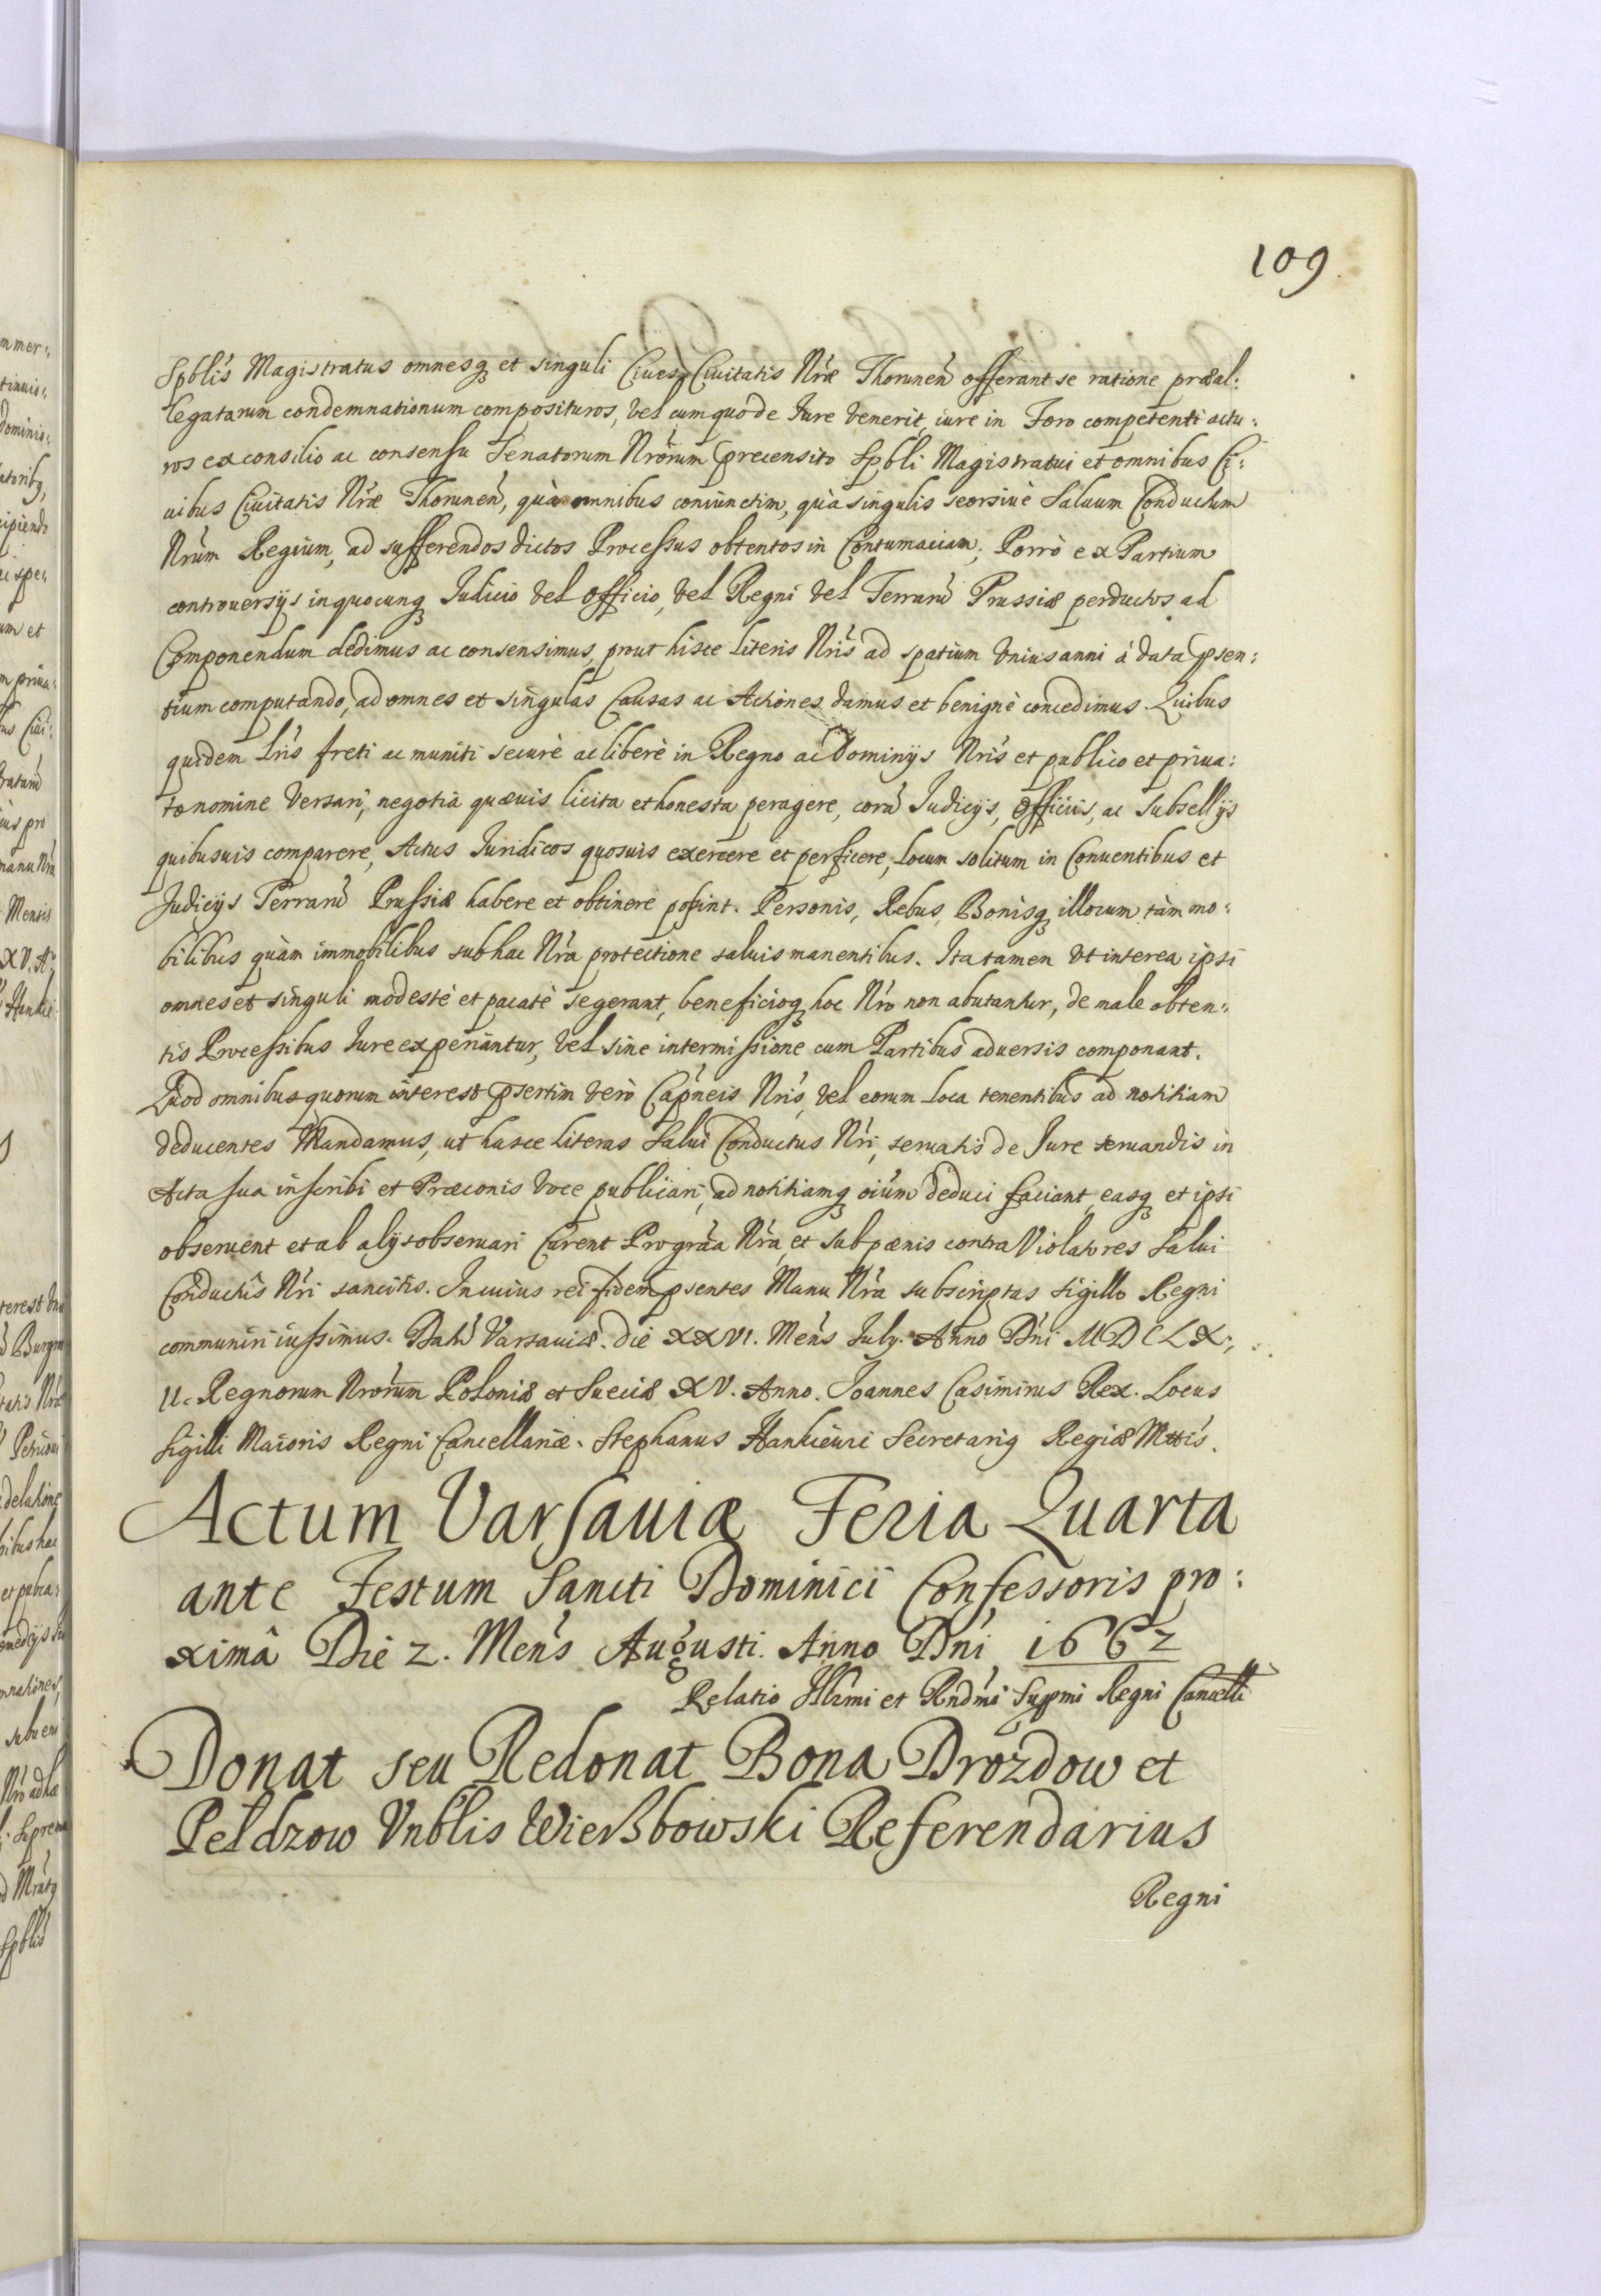 109
Spblis Magistratus omnesq et singuli Ciuesq Ciuitatis Nrae Thorunen offerant se ratione praeal:
legatarum condemnationum composituros, vel cum quo de Iure venerit, iure in Foro competenti actu:
ros ex consilio ac consensu Senatorum Nrorum precensito Spbli Magistratui et omnibus Ci:
uibus Ciuitatis Nrae Thorunen, quà omnibus coniunctim, quà singulis seorsiuè Saluum Conductum
Nrum Regium, ad sufferendos dictos Processus obtentos in Contumaciam; Porrò ex Partium
controuersijs in quocunq Iudicio vel officio, vel Regni vel Terraru Prussiae perductos ad
Componendum dedimus ac consensimus, prout hisce literis Nris ad spatium vnius anni á data psen:
tium computando, ad omnes et singulas Causas ac Actiones damus et benignè concedimus. Quibus
quidem Lris freti ac muniti securè ac liberè in Regno ac Dominijs Nris et publico et priua:
to nomine versari, negotia quaeuis licita et honesta peragere, corã Iudicijs, Officiis, ac Subsellijs
quibusuis comparere, Actus Iuridicos quosuis exercere et perficere, Locum solitum in Conuentibus et
Iudicijs Terraru Prussiae habere et obtinere possint. Personis, Rebus, Bonisq illorum tàm mo:
bilibus quàm immobilibus sub hac Nra protectione saluis manentibus. Ita tamen vt interea ipsi
omnes et singuli modestè et pacatè se gerant, beneficioq hoc Nro non abutantur, de male obten:
tis Processibus Iure experiantur, vel sine intermissione cum Partibus aduersis componant.
Quod omnibus quorum interest psertim verò Capneis Nris, vel eorum Loca tenentibus ad notitiam
deducentes Mandamus, ut hasce literas Salui Conductus Nri, seruatis de Iure seruandis in
Acta sua inscribi et Praeconis voce publicari, ad notitiamq oium deduci faciant, easq et ipsi
obseruent et ab alijs obseruari Curent Pro gratia Nra, et sub paenis contra Violatores Salui
Conductus Nri sancitis. In cuius rei fidem psentes Manu Nra subscriptas Sigillo Regni
communiri iussimus. Datu Varsauiae. die XXVI. Mens Iuly. Anno Dni MDCLX;
II. Regnorum Nrorum Poloniae et Sueciae XV. Anno. Ioannes Casimirus Rex. Locus
Sigilli Maioris Regni Cancellariae. Stephanus Hankieuic Secretarig Regiae Mttis.
Actum Varsauiae Feria Quarta
ante Festum Sancti Dominici Confessoris pro:
ximâ Die 2. Mens Augusti. Anno Dni 1662
Relatio Illrmi et Rndmi Supmi Regni Cancelli
Donat seu Redonat Bona Drozdow et
Peldzow Vnblis Wierßbowski Referendarius
Regni